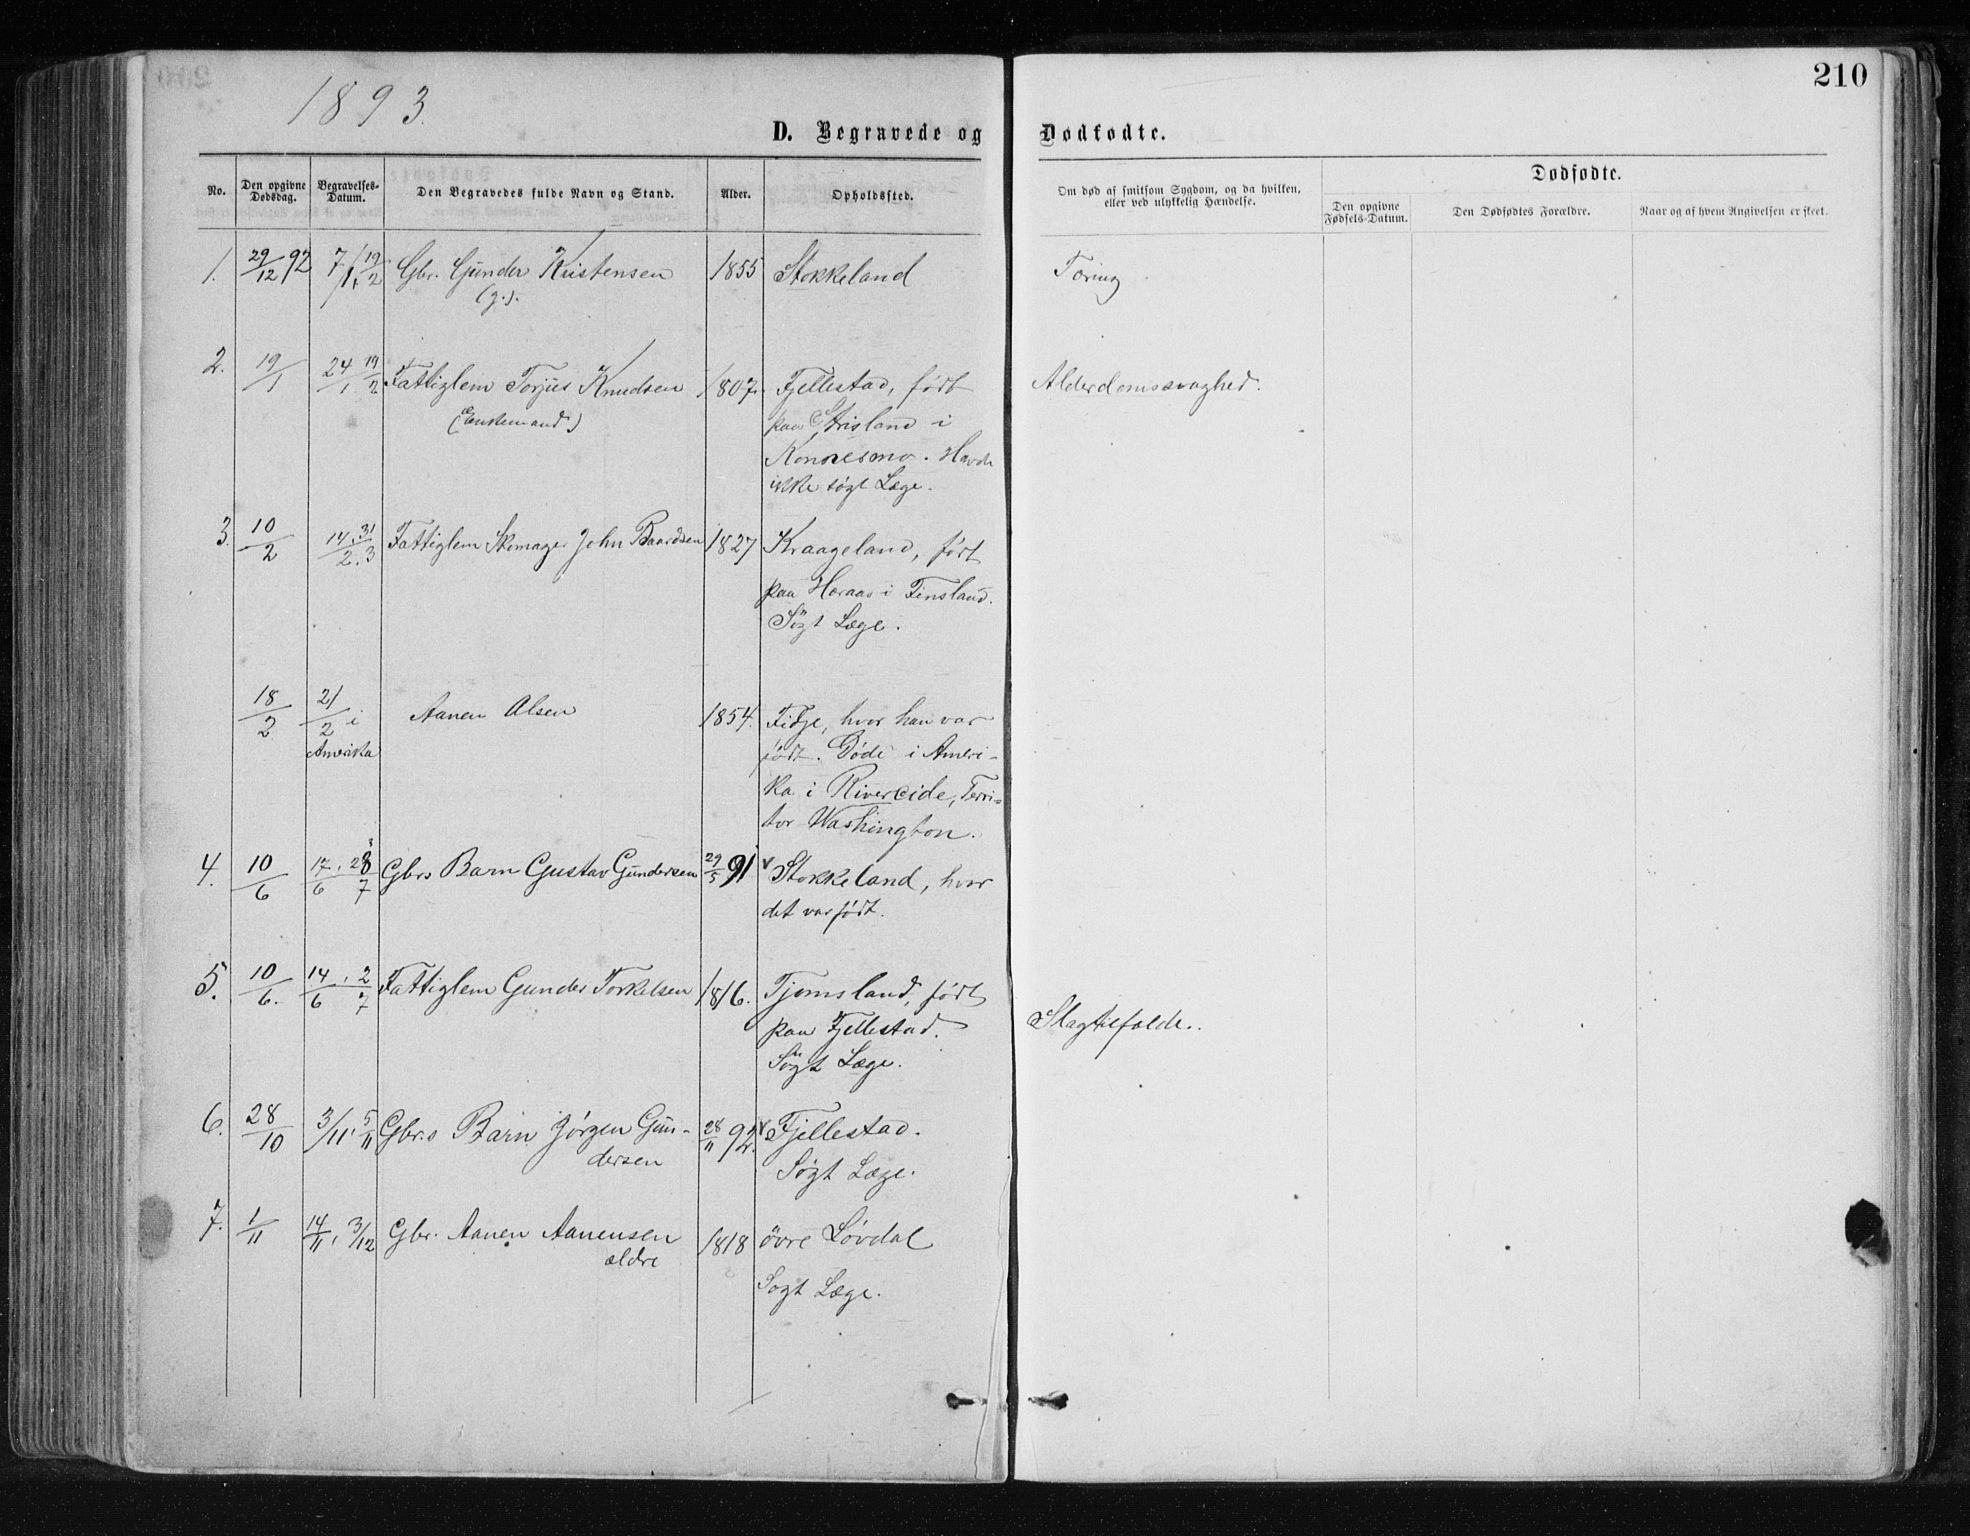 210
1893.
D. Begravede og Dødfødte.
No.
Den opgivne Dødsdag.
Begravelses-Datum.
Den Begravedes fulde Navn og Stand.
Alder.
Opholdssted.
Om død af smitsom Sygdom, og da hvilken, eller ved ulykkelig Hændelse.
Dødfødte.
Den opgivne Fødsels-Datum.
Den Dødfødtes Forældre.
Naar og af hvem Angivelsen er skeet.
1. 29/12 92 7/1, 19/2 Gbr. Gunder Kristensen 1855 Stokkeland Tæring
(g.).
2. 19/1 24/1 19/2 Fattiglem Torjus Knudsen 1807. Fjellestad, født Alderdomssvaghed.
(Enkemand) paa Strisland i
Konnesmo. Havde
ikke søgt Læge.
3. 10/2 14/2. 31/3 Fattiglem Skomager John Baardsen 1827 Kraageland, født
paa Høraas i Finsland.
Søgt Læge.
18/2 21/2 i Aanen Olsen 1854. Fidje, hvor han var
Amerika født. Døde i Ameri-
ka i Riverside, Terri-
tor Washington.
4. 10/6 17/6, 28/7 Gbrs Barn Gustav Gundersen 29/5 91 Stokkeland, hvor
det var født.
5. 10/6. 14/6, 2/7 Fattiglem Gunder Torkelsen 1816. Tjomsland, født
paa Fjellestad. Slagtilfælde.
Søgt Læge.
6. 28/10 3/11, 5/11 Gbr.s Barn Jørgen Gun- 28/11 92. Fjellestad.
dersen Søgt Læge.
7. 1/11 14/11, 3/12 Gbr. Aanen Aanensen 1818 øvre Løvdal
ældre Søgt Læge.